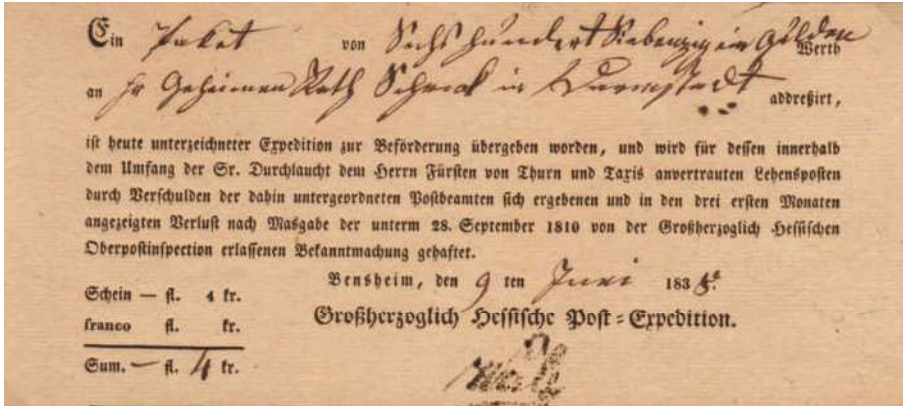 Ein Paket von Sechs hundert Siebenzig ein Gulden Werth
an Hr Geheimen Rath Schenck in Darmstadt addreßirt,
ist heute unterzeichneter Expedition zur Beförderung übergeben worden, und wird für dessen innerhalb
dem Umfang der Sr. Durchlaucht dem Herrn Fürsten von Thurn und Taxis anvertrauten Lehensposten
durch Verschulden der dahin untergeordneten Postbeamten sich ergebenen und in den drei ersten Monaten
angezeigten Verlust nach Masgabe der unterm 28. September 1810 von der Großherzoglich Hessischen
Oberpostinspection erlassenen Bekanntmachung gehaftet.
Bensheim, den 9 ten Juni 1838.
Schein — fl. 4 kr.
franco fl. kr.
Großherzoglich Hessische Post-Expedition.
Sum. — fl. 4 kr.